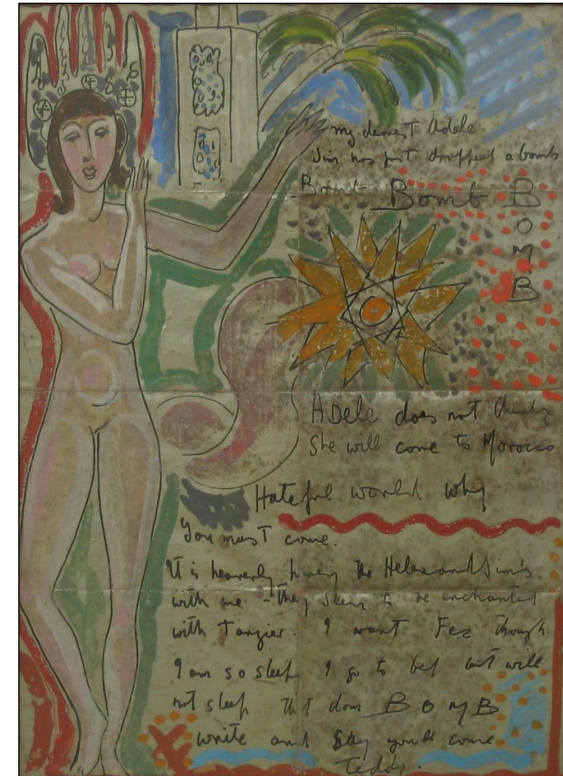 my dearest Adele
Jim has just dropped a bomb
Bomb Bomb BOMB
Adele does not think
She will come to Morocco
Hateful world why
You must come.
It is heavenly having the Helen and Jim's
with me - They seem to be enchanted
with Tangier. I want Fez though
I am so sleepy I go to bed but will
not sleep BOMB
write and say you'll come
Teddy.